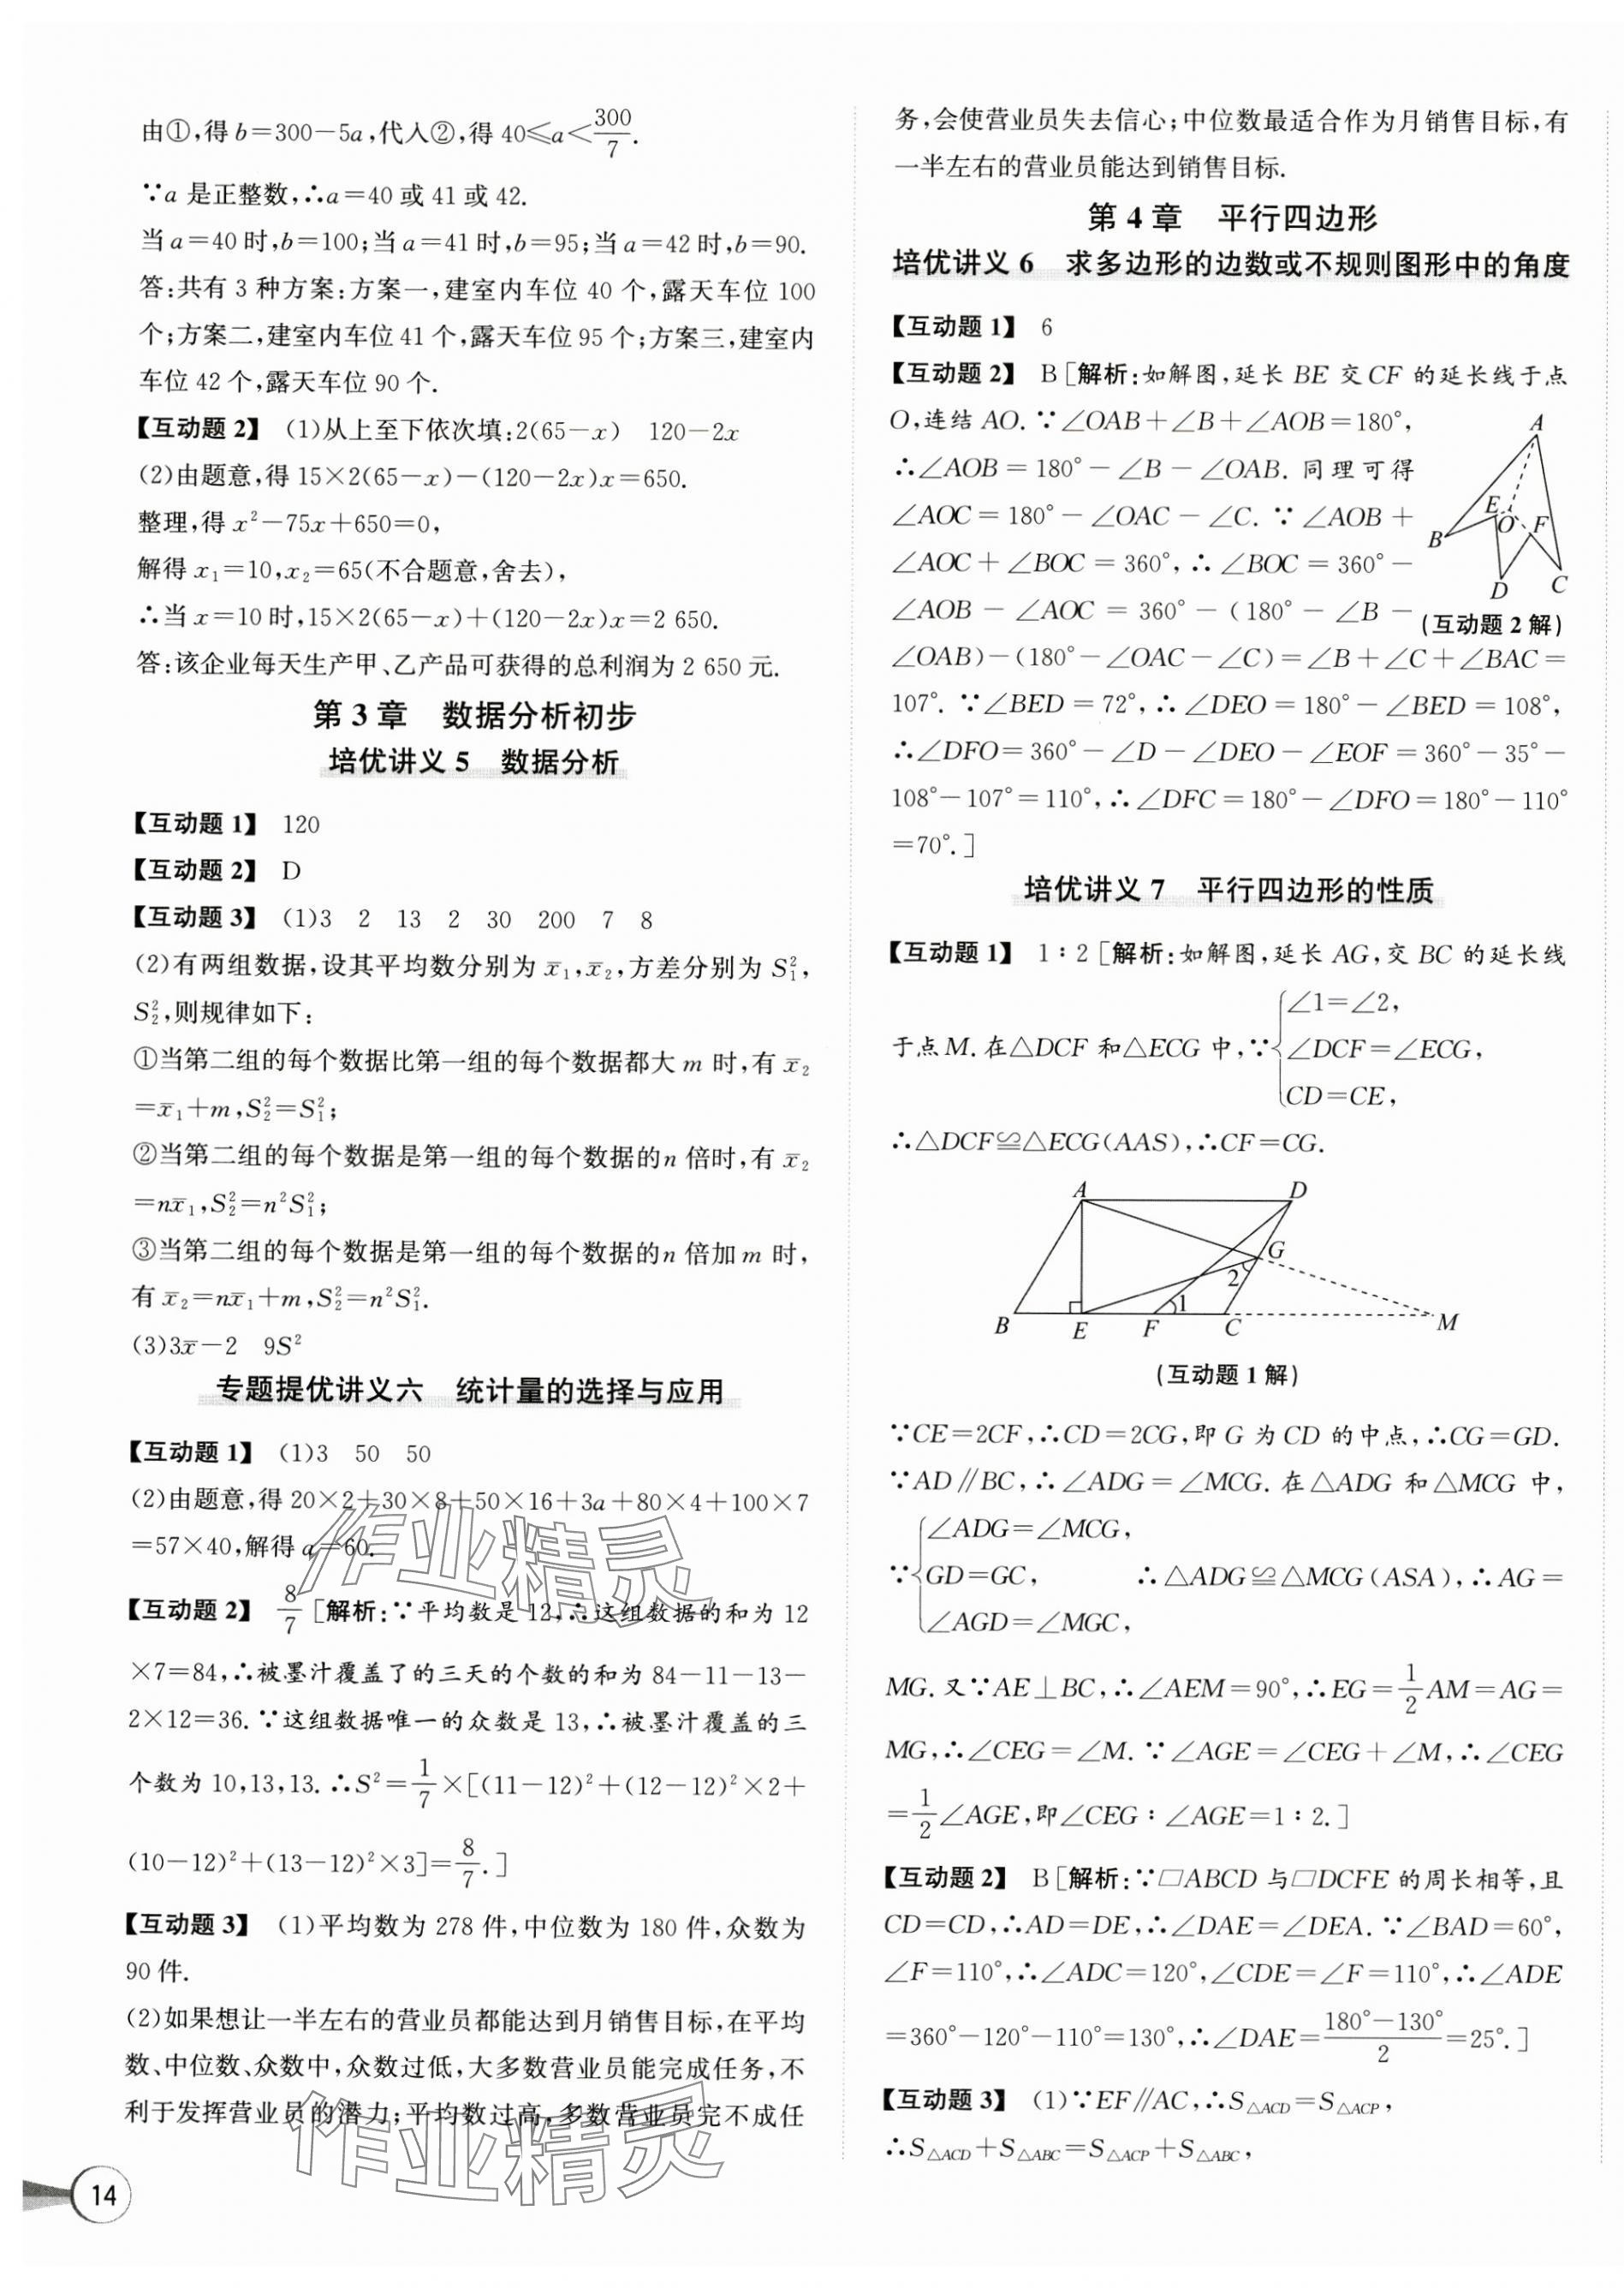 由①,得 b=300-5a,代入②,得 40≤a<300/7.
∵a 是正整数,∴a=40 或 41 或 42.
当 a=40 时,b=100;当 a=41 时,b=95;当 a=42 时,b=90.
答:共有 3 种方案:方案一,建室内车位 40 个,露天车位 100
个;方案二,建室内车位 41 个,露天车位 95 个;方案三,建室内
车位 42 个,露天车位 90 个.
【互动题 2】 (1)从上至下依次填:2(65-x) 120-2x
(2)由题意,得 15×2(65-x)-(120-2x)x=650.
整理,得 x²-75x+650=0,
解得 x₁=10,x₂=65(不合题意,舍去),
∴当 x=10 时,15×2(65-x)+(120-2x)x=2 650.
答:该企业每天生产甲、乙产品可获得的总利润为 2 650 元.
第 3 章 数据分析初步
培优讲义 5 数据分析
【互动题 1】 120
【互动题 2】 D
【互动题 3】 (1)3 2 13 2 30 200 7 8
(2)有两组数据,设其平均数分别为 x̄₁,x̄₂,方差分别为 S₁²,
S₂²,则规律如下:
①当第二组的每个数据比第一组的每个数据都大 m 时,有 x̄₂
=x̄₁+m,S₂²=S₁²;
②当第二组的每个数据是第一组的每个数据的 n 倍时,有 x̄₂
=nx̄₁,S₂²=n²S₁²;
③当第二组的每个数据是第一组的每个数据的 n 倍加 m 时,
有 x̄₂=nx̄₁+m,S₂²=n²S₁².
(3)3x̄-2 9S²
专题提优讲义六 统计量的选择与应用
【互动题 1】 (1)3 50 50
(2)由题意,得 20×2+30×8+50×16+3a+80×4+100×7
=57×40,解得 a=60.
【互动题 2】 8/7 [解析:∵平均数是 12,∴这组数据的和为 12
×7=84,∴被墨汁覆盖了的三天的个数的和为 84-11-13-
2×12=36.∵这组数据唯一的众数是 13,∴被墨汁覆盖的三
个数为 10,13,13.∴S²=1/7×[(11-12)²+(12-12)²×2+
(10-12)²+(13-12)²×3]=8/7.]
【互动题 3】 (1)平均数为 278 件,中位数为 180 件,众数为
90 件.
(2)如果想让一半左右的营业员都能达到月销售目标,在平均
数、中位数、众数中,众数过低,大多数营业员能完成任务,不
利于发挥营业员的潜力;平均数过高,多数营业员完不成任
作业精灵
作业精灵
14
务,会使营业员失去信心;中位数最适合作为月销售目标,有
一半左右的营业员能达到销售目标.
第 4 章 平行四边形
培优讲义 6 求多边形的边数或不规则图形中的角度
【互动题 1】 6
【互动题 2】 B [解析:如解图,延长 BE 交 CF 的延长线于点
O,连结 AO.∵∠OAB+∠B+∠AOB=180°,
∴∠AOB=180°-∠B-∠OAB.同理可得
∠AOC=180°-∠OAC-∠C.∵∠AOB+
∠AOC+∠BOC=360°,∴∠BOC=360°-
∠AOB-∠AOC=360°-(180°-∠B-
A
B
E
O
F
D
C
(互动题 2 解)
∠OAB)-(180°-∠OAC-∠C)=∠B+∠C+∠BAC=
107°.∵∠BED=72°,∴∠DEO=180°-∠BED=108°,
∴∠DFO=360°-∠D-∠DEO-∠EOF=360°-35°-
108°-107°=110°,∴∠DFC=180°-∠DFO=180°-110°
=70°.]
培优讲义 7 平行四边形的性质
【互动题 1】 1∶2 [解析:如解图,延长 AG,交 BC 的延长线
于点 M.在△DCF 和△ECG 中,∵{∠1=∠2,
∠DCF=∠ECG,
CD=CE,
∴△DCF≌△ECG(AAS),∴CF=CG.
A
D
G
2
1
B
E
F
C
M
(互动题 1 解)
∵CE=2CF,∴CD=2CG,即 G 为 CD 的中点,∴CG=GD.
∵AD∥BC,∴∠ADG=∠MCG.在△ADG 和△MCG 中,
∠ADG=∠MCG,
∵{GD=GC, ∴△ADG≌△MCG(ASA),∴AG=
∠AGD=∠MGC,
MG.又∵AE⊥BC,∴∠AEM=90°,∴EG=1/2AM=AG=
MG,∴∠CEG=∠M.∵∠AGE=∠CEG+∠M,∴∠CEG
=1/2∠AGE,即∠CEG∶∠AGE=1∶2.]
【互动题 2】 B [解析:∵▱ABCD 与▱DCFE 的周长相等,且
CD=CD,∴AD=DE,∴∠DAE=∠DEA.∵∠BAD=60°,
∠F=110°,∴∠ADC=120°,∠CDE=∠F=110°,∴∠ADE
=360°-120°-110°=130°,∴∠DAE=(180°-130°)/2=25°.]
【互动题 3】 (1)∵EF∥AC,∴S△ACD=S△ACP,
∴S△ACD+S△ABC=S△ACP+S△ABC,